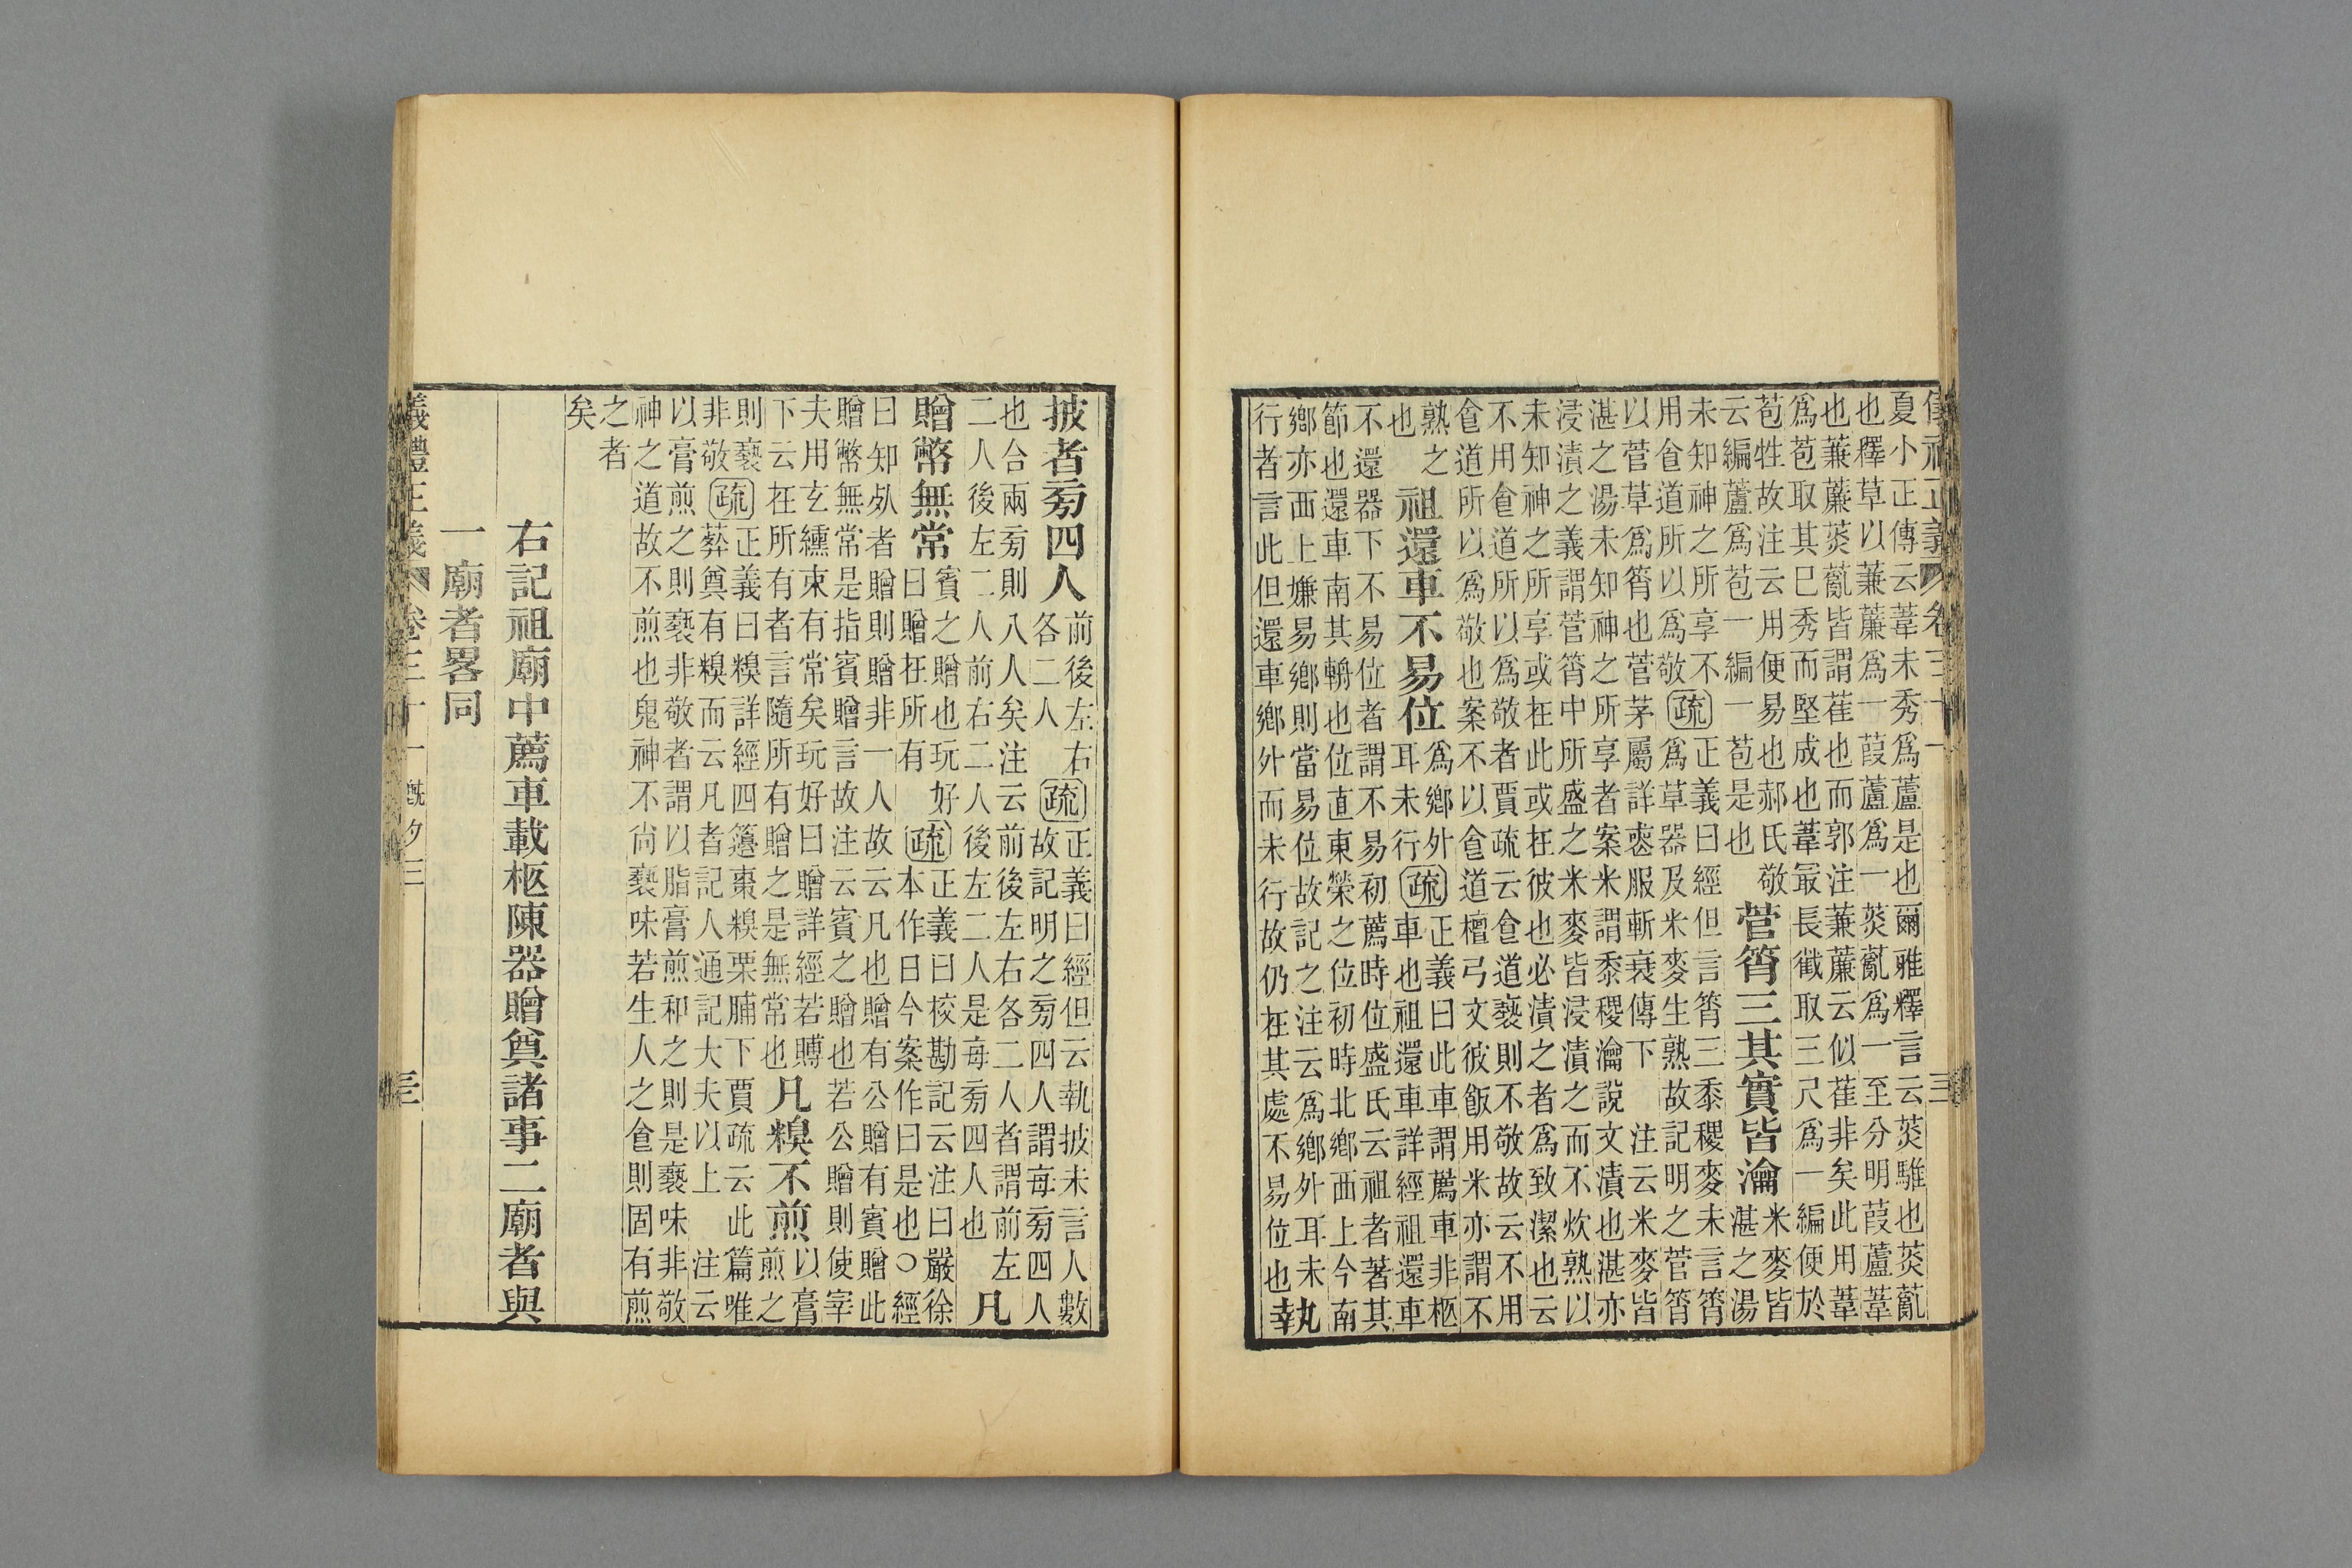 夏小正傳云葦未秀爲蘆是也爾雅釋言云菼騅也菼薍
也釋草以蒹薕爲一葭蘆爲一菼薍爲一至分明葭蘆葦
也蒹薕菼薍皆謂萑也而郭注蒹薕云似萑非矣此用葦
爲苞取其已秀而堅成也葦最長截取三尺爲一編便於
苞牲故注云用便易也郝氏敬
云編蘆爲苞一編一苞是也
菅筲三其實皆瀹
米麥皆
湛之湯
未知神之所享不
用食道所以爲敬
疏
正義曰經但言筲三黍稷麥未言筲
爲草器及米麥生熟故記明之菅筲
以菅草爲筲也菅茅屬詳喪服斬衰傳下 注云米麥皆
湛之湯未知神之所享者案米謂黍稷瀹說文漬也湛亦
浸漬之義謂菅筲中所盛之米麥皆浸漬之而不炊熟以
未知神之所享或在此或在彼也必漬之者爲致潔也云
不用食道所以爲敬者賈疏云食道褻則不敬故云不用
食道所以爲敬也案不以食道檀弓文彼飯用米亦謂不
熟之
也
祖還車不易位
爲鄉外
耳未行
疏
正義曰此車謂薦車非柩
車也祖還車詳經祖還車
不還器下不易位者謂不易初薦時位盛氏云祖者著其
節也還車南其輈也位直東榮之位初時北鄉西上今南
鄉亦西上嫌易鄉則當易位故記之注云爲鄉外耳未
行者言此但還車鄉外而未行故仍在其處不易位也
執
披者旁四人
前後左右
各二人
疏
正義曰經但云執披未言人數
故記明之旁四人謂每旁四人
也合兩旁則八人矣注云前後左右各二人者謂前左
二人後左二人前右二人後左二人是每旁四人也
凡
贈幣無常
賓之贈也玩好
曰贈在所有
疏
正義曰校勘記云注曰嚴徐
本作日今案作曰是也○經
曰知処者贈則贈非一人故云凡也贈有公贈有賓贈此
贈幣無常是指賓贈言故注云賓之贈也若公贈則使宰
夫用玄纁束有常矣玩好曰贈詳經若賻
下云在所有者言隨所有贈之是無常也
凡糗不煎
以膏
煎之
則褻
非敬
疏
正義曰糗詳經四籩棗糗栗脯下 賈疏云此篇唯
葬奠有糗而云凡者記人通記大夫以上 注云
以膏煎之則褻非敬者謂以脂膏煎和之則是褻味非敬
神之道故不煎也鬼神不尚褻味若生人之食則固有煎
之者
矣
右記祖廟中薦車載柩陳器贈奠諸事二廟者與
一廟者畧同
儀禮正義 卷三十一 既夕三